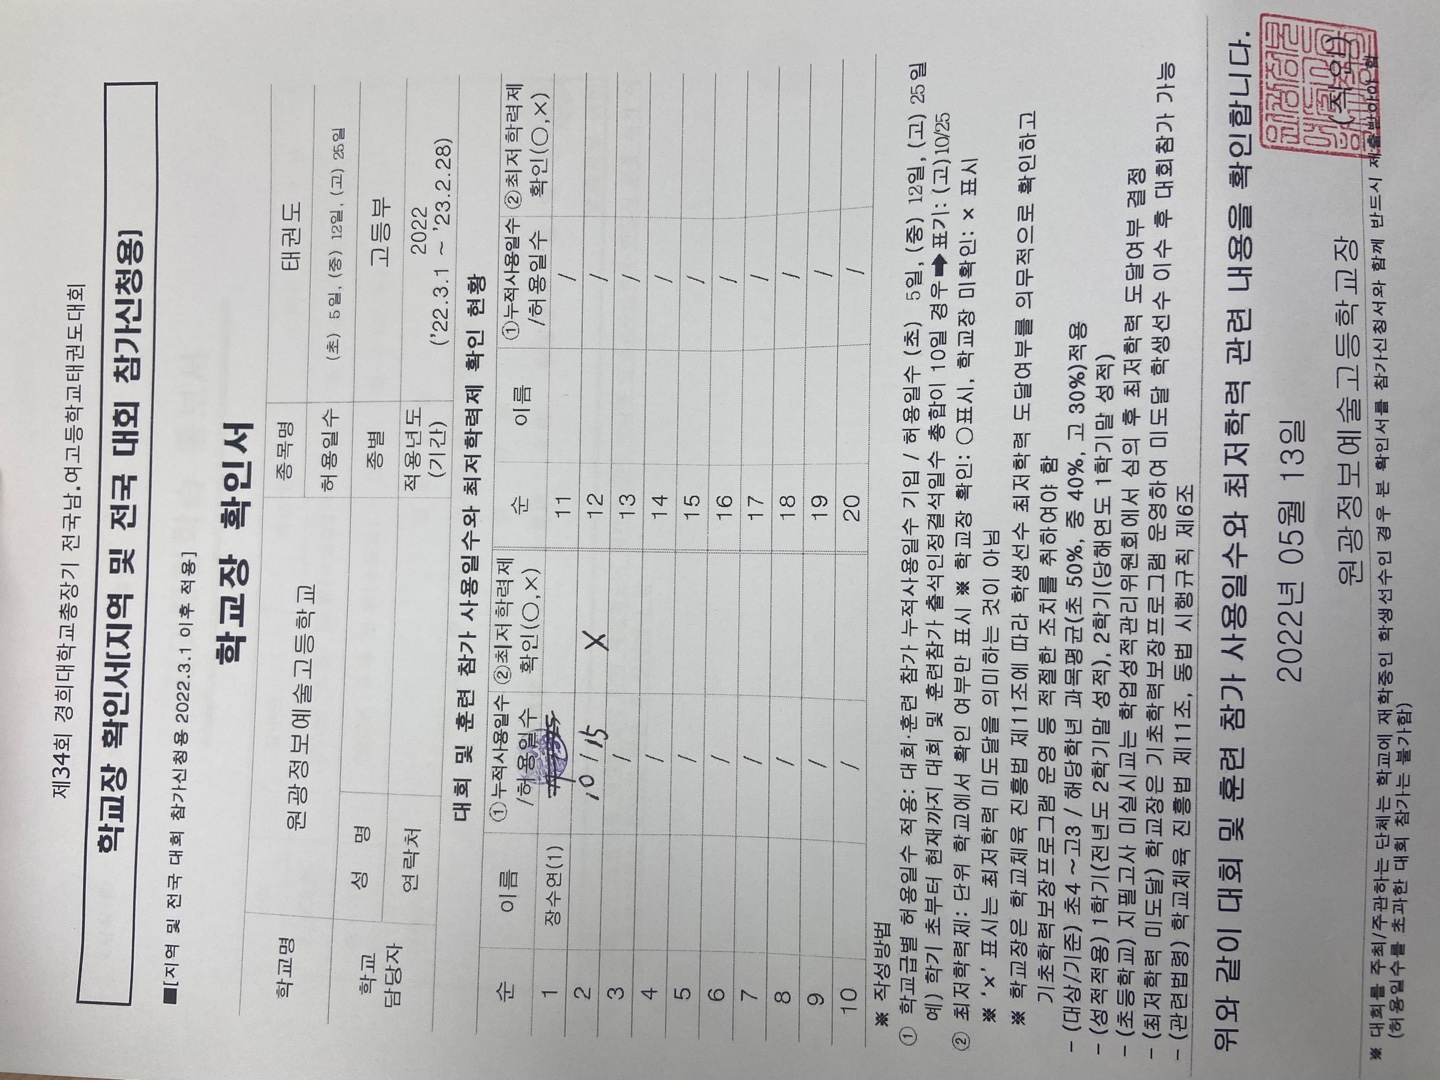 제34회 경희대학교총장기 전국남.여고등학교태권도대회
학교장 확인서[지역 및 전국 대회 참가신청용]
■[지역 및 전국 대회 참가신청용 2022.3.1 이후 적용]
학교장 확인서
학교명 원광정보예술고등학교 종목명 태권도
허용일수 (초) 5일, (중) 12일, (고) 25일
학교 담당자 성 명 종별 고등부
연락처 적용년도 (기간) 2022 ('22.3.1 ~ '23.2.28)
대회 및 훈련 참가 사용일수와 최저학력제 확인 현황
순 이름 ①누적사용일수 /허용일수 ②최저학력제 확인(○,×) 순 이름 ①누적사용일수 /허용일수 ②최저학력제 확인(○,×)
1 장수연(1) 11 /
2 10/15 X 12 /
3 / 13 /
4 / 14 /
5 / 15 /
6 / 16 /
7 / 17 /
8 / 18 /
9 / 19 /
10 / 20 /
※ 작성방법
① 학교급별 허용일수 적용: 대회·훈련 참가 누적사용일수 기입 / 허용일수 (초) 5일, (중) 12일, (고) 25일
예) 학기 초부터 현재까지 대회 및 훈련참가 출석인정결석일수 총합이 10일 경우➡표기: (고)10/25
② 최저학력제: 단위 학교에서 확인 여부만 표시 ※ 학교장 확인: ○표시, 학교장 미확인: × 표시
※ '×' 표시는 최저학력 미도달을 의미하는 것이 아님
※ 학교장은 학교체육 진흥법 제11조에 따라 학생선수 최저학력 도달여부를 의무적으로 확인하고
기초학력보장프로그램 운영 등 적절한 조치를 취하여야 함
- (대상/기준) 초4 ~고3 / 해당학년 과목평균(초 50%, 중 40%, 고 30%)적용
- (성적적용) 1학기(전년도 2학기말 성적), 2학기(당해연도 1학기말 성적)
- (초등학교) 지필고사 미실시교는 학업성적관리위원회에서 심의 후 최저학력 도달여부 결정
- (최저학력 미도달) 학교장은 기초학력보장프로그램 운영하여 미도달 학생선수 이수 후 대회참가 가능
- (관련법령) 학교체육 진흥법 제11조, 동법 시행규칙 제6조
위와 같이 대회 및 훈련 참가 사용일수와 최저학력 관련 내용을 확인합니다.
2022년 05월 13일
원광정보예술고등학교장 (직인)
※ 대회를 주최/주관하는 단체는 학교에 재학중인 학생선수인 경우 본 확인서를 참가신청서와 함께 반드시 제출받아야 함
(허용일수를 초과한 대회 참가는 불가함)